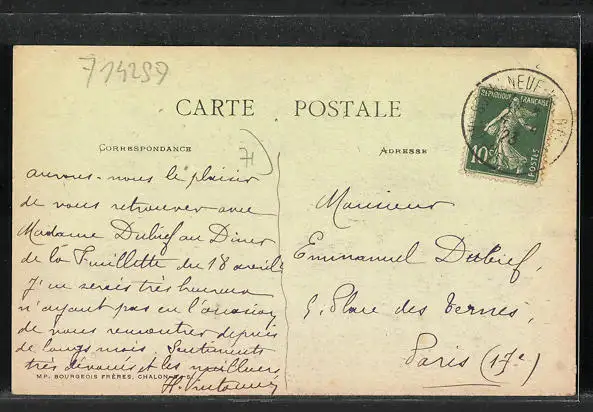 714259
CARTE POSTALE
CORRESPONDANCE
71
ADRESSE
NEUF
REPUBLIQUE FRANÇAISE
10c
POSTES
23
aurons-nous le plaisir
de vous retrouver avec
Madame Dubief au Diner
de la Feuillette du 18 avril
J'en serais très heureux
n'ayant pas eu l'occasion
de vous rencontrer depuis
de longs mois. Sentiments
très dévoués et les meilleurs
M.P. BOURGEOIS FRÈRES, CHALON-S-S.
Monsieur
Emmanuel Dubief,
5, Place des Ternes,
Paris (17e)